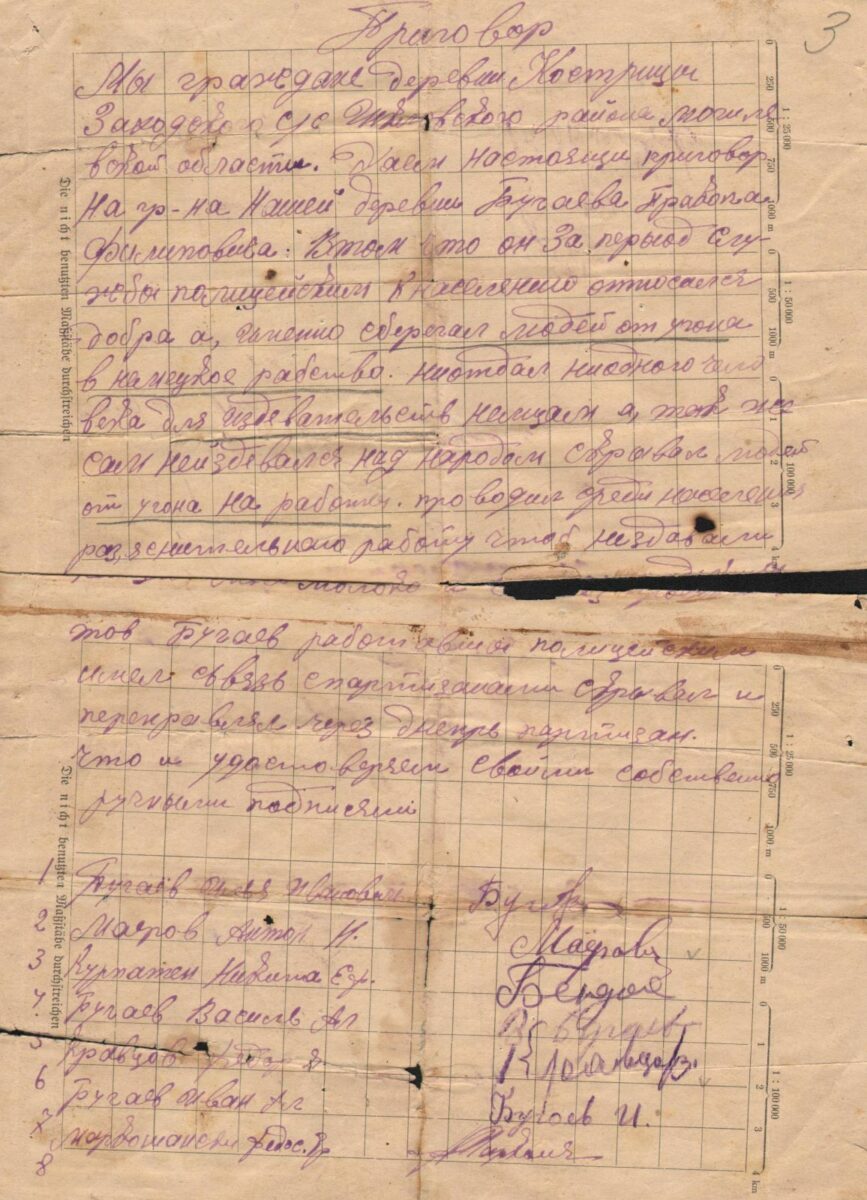 3
Приговор
Мы граждане деревни Кострицы
Заходского с/с района Могиле
вской области. Даем настоящи приговор
на гр-на нашей деревни Бугаева Пракопа
Филиповича. Втом что он За перыод Слу
жбы полицейским К населению относился
добра а, именно сберегал людей от угона
в намецкое рабство. ниотдал ниодного чело
века для издевательств немцам а, так же
сам неиздевался над народом скрывал людей
от угона на работы. проводил среди населения
раз,яснительною работу чтоб нездавали
молоко и
тов Бугаев работавши полицейским
имел связь спартизанами скрывал и
переправлял через днепр партизан.
Что и удостоверяем своими собствено
ручными подписями
1 Бугаев Иванович
2 Мауров Антон И. Мауров
3 Никита Еф.
4 Бугаев Василь Ал
5 Кравцов Федор Я Кравцов
6 Бугаев Иван Ал Бугаев И.
7
8
Die nicht benutzten Maßstäbe durchstreichen
0 250 500 750 1000 m
1 : 25 000
0 500 1000 m
1 : 50 000
0 1 2 3 4 km
1 : 100 000
Die nicht benutzten Maßstäbe durchstreichen
0 250 500 750 1000 m
1 : 25 000
0 500 1000 m
1 : 50 000
0 1 2 3 4 km
1 : 100 000